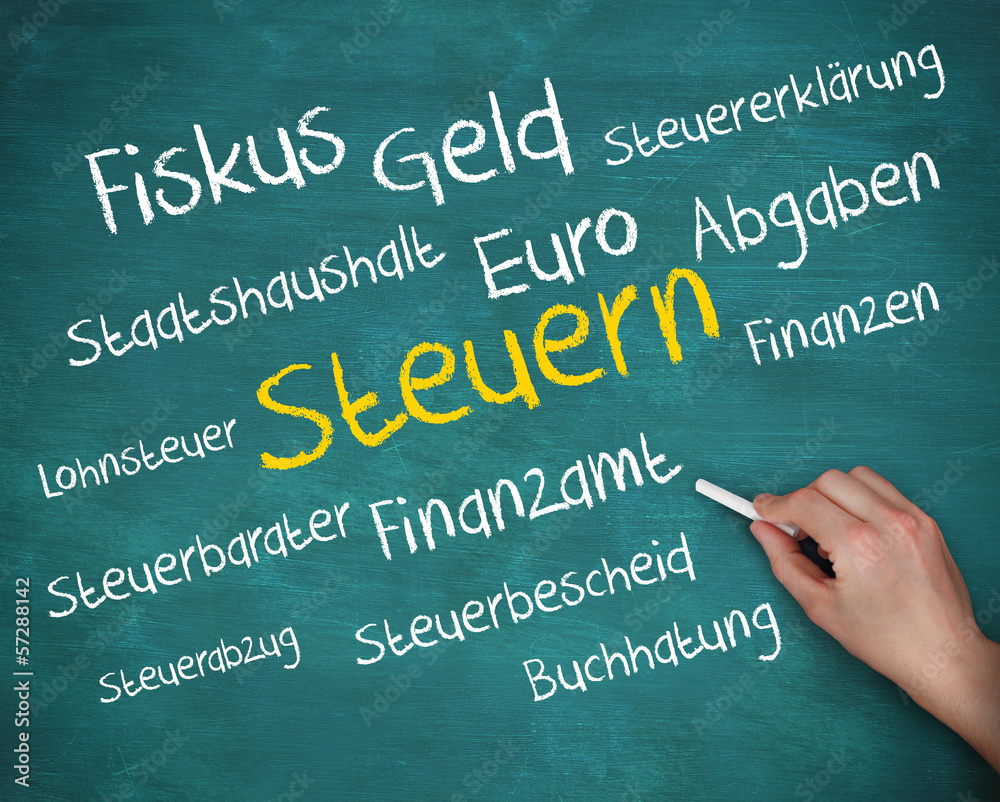 Fiskus Geld Steuererklärung
Staatshaushalt Euro Abgaben
Steuern Finanzen
Lohnsteuer
Steuerbarater Finanzamt
Steuerabzug Steuerbescheid
Buchhatung
Adobe Stock | #57288142